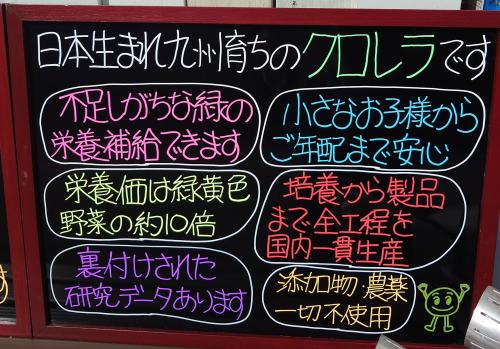 日本生まれ九州育ちのクロレラです
不足しがちな緑の
栄養補給できます
小さなお子様から
ご年配まで安心
栄養価は緑黄色
野菜の約10倍
培養から製品
まで全工程を
国内一貫生産
裏付けされた
研究データあります
添加物・農薬
一切不使用
す